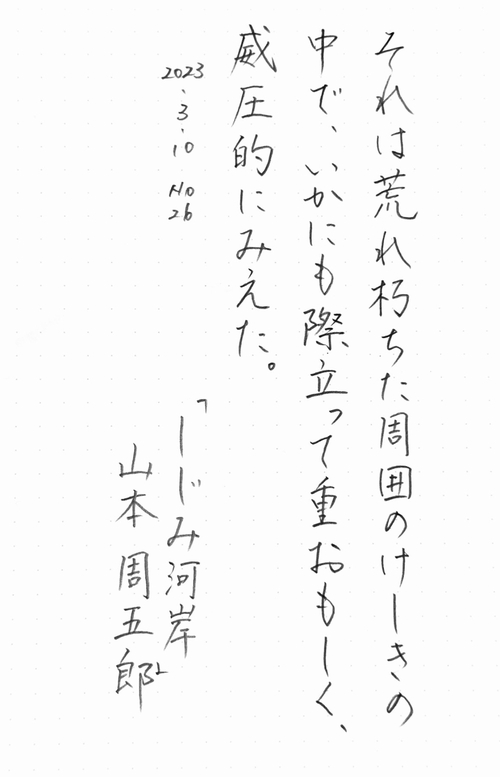 それは荒れ朽ちた周囲のけしきの
中で、いかにも際立って重おもしく、
威圧的にみえた。
2023.3.10 No 26
「しじみ河岸
山本周五郎」